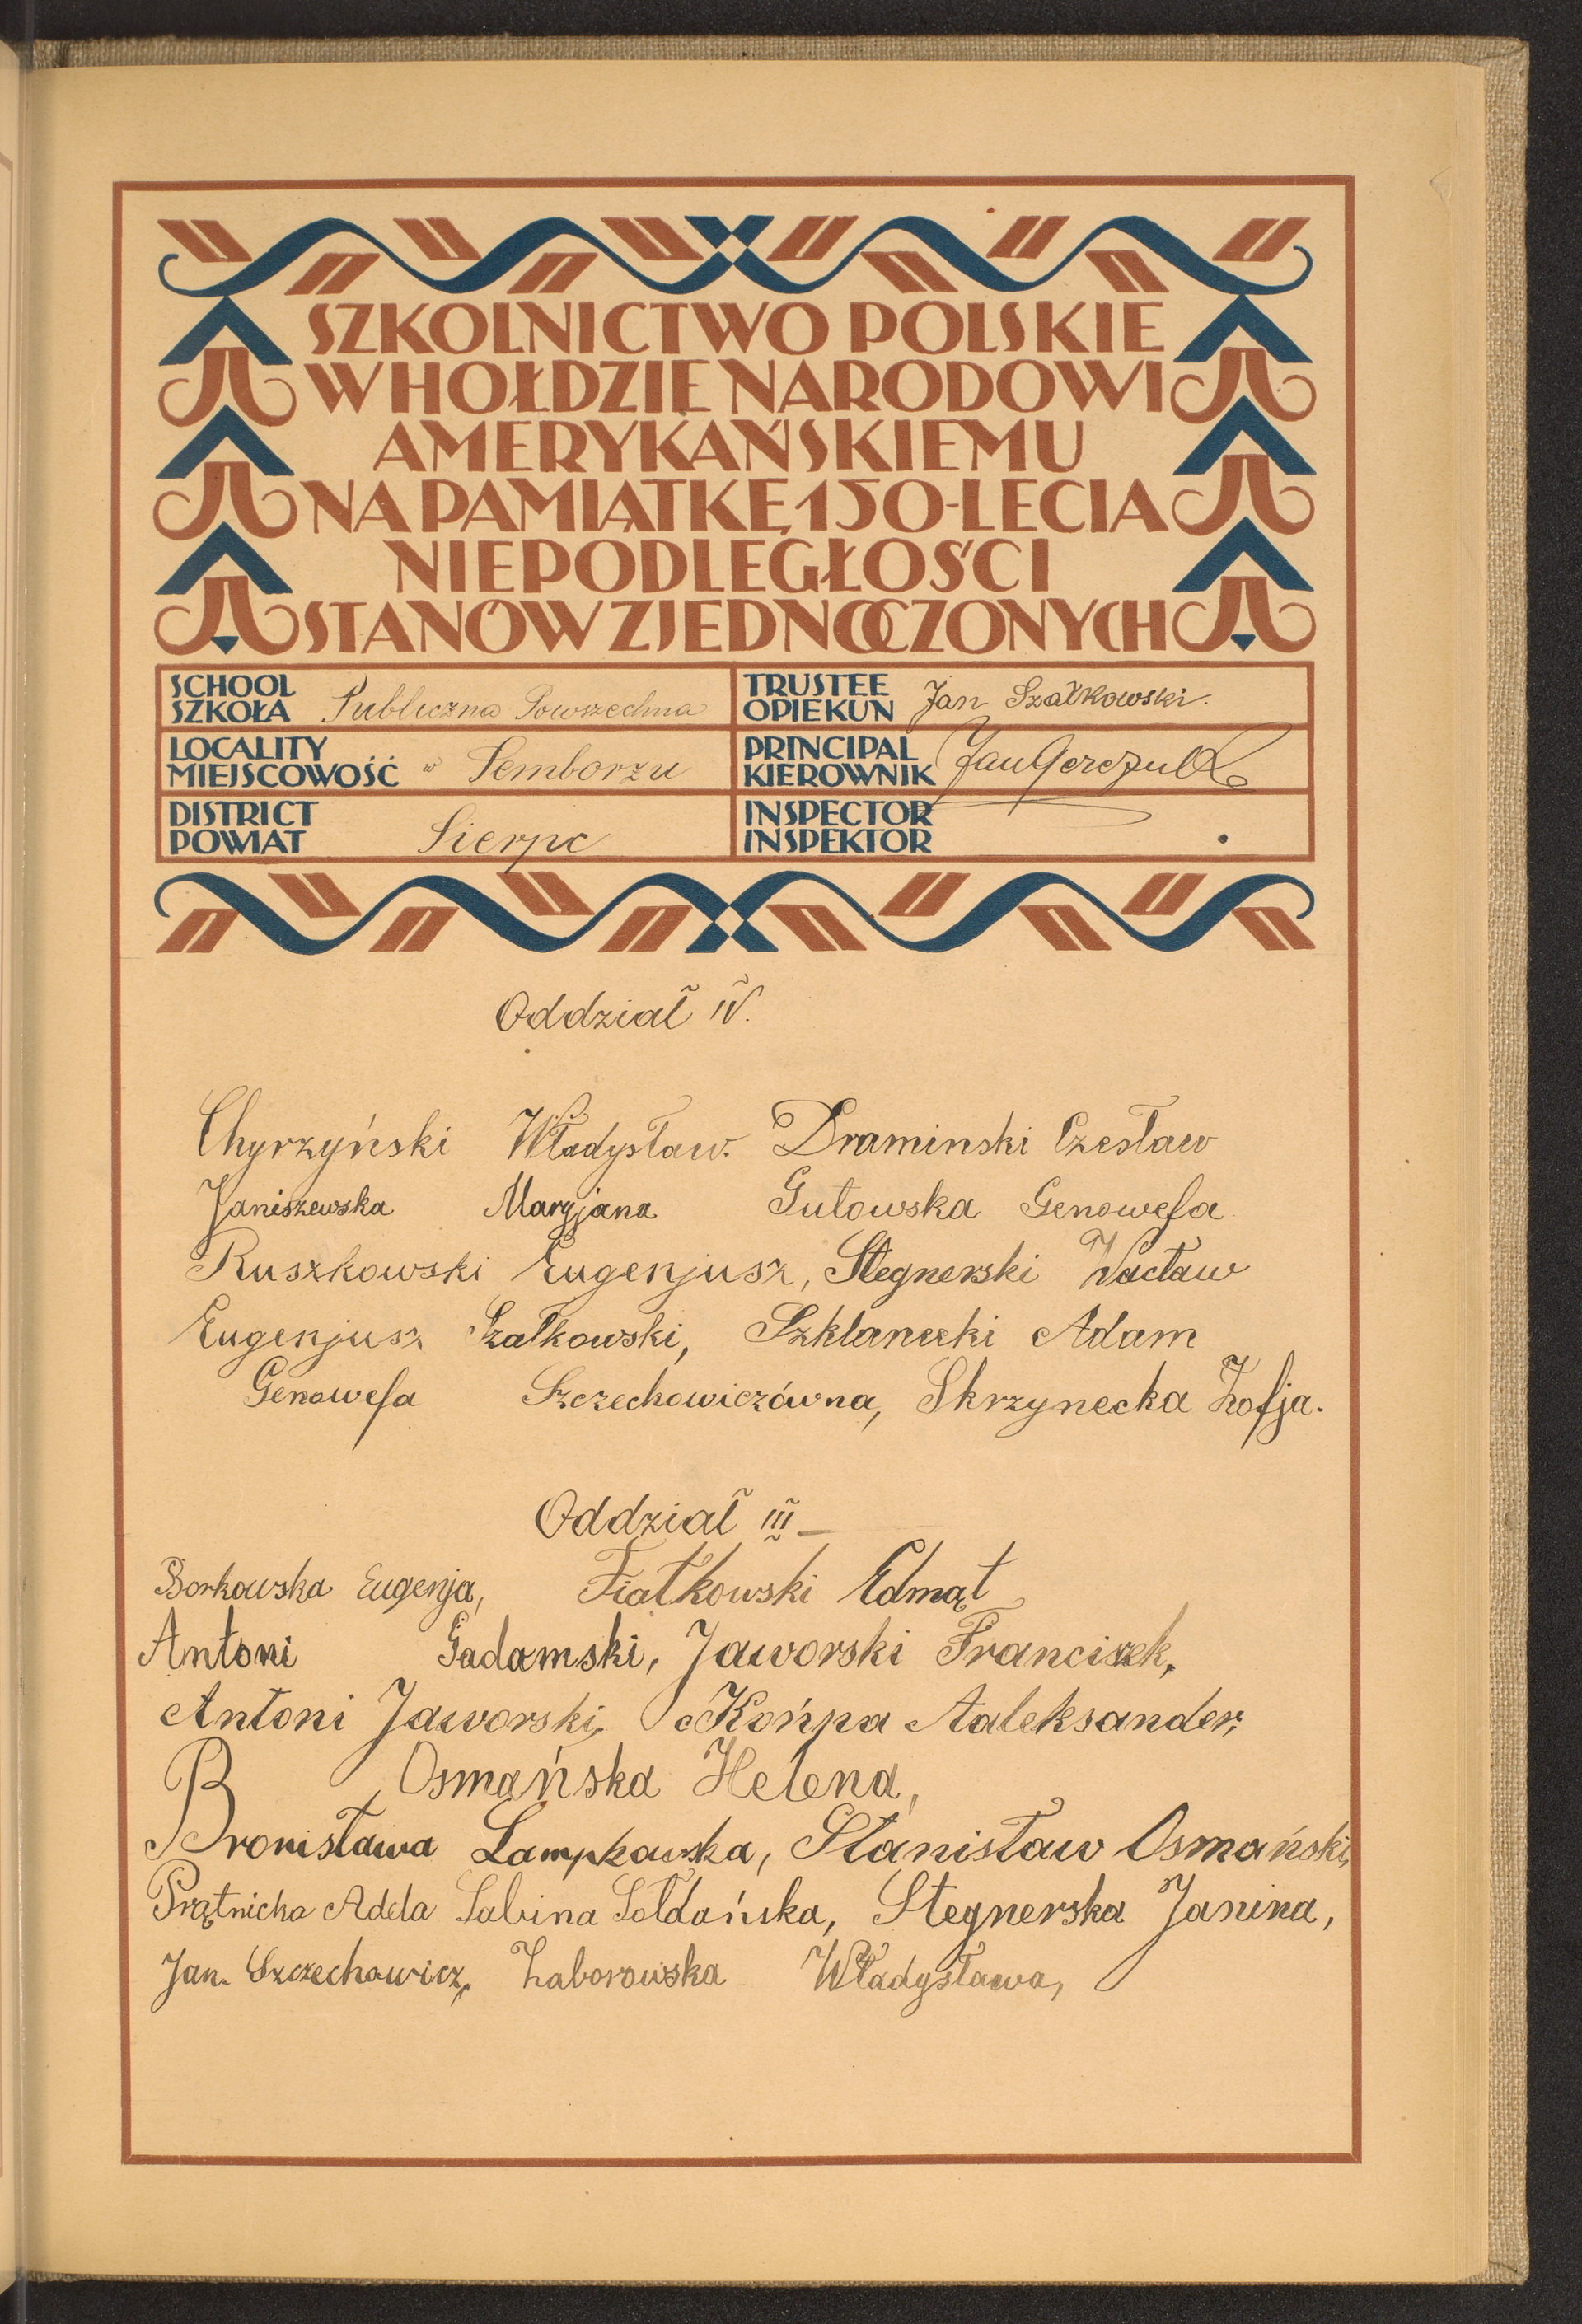 SZKOLNICTWO POLSKIE
W HOŁDZIE NARODOWI
AMERYKAŃSKIEMU
NA PAMIĄTKĘ 150-LECIA
NIEPODLEGŁOŚCI
STANÓW ZJEDNOCZONYCH
SCHOOL
SZKOŁA Publiczna Powszechna
TRUSTEE
OPIEKUN Jan Szałkowski.
LOCALITY
MIEJSCOWOŚĆ w Semborzu
PRINCIPAL
KIEROWNIK Jan
DISTRICT
POWIAT Sierpc
INSPECTOR
INSPEKTOR
Oddział IV.
Chyrzyński Władysław. Draminski Czesław
Janiszewska Maryjana Gutowska Genowefa
Ruszkowski Eugenjusz, Stegnerski Wacław
Eugenjusz Szałkowski, Szklanecki Adam
Genowefa Szczechowiczówna, Skrzynecka Zofja.
Oddział III
Borkowska Eugenja, Fiałkowski Edmąt
Antoni Gadamski, Jaworski Franciszek,
Antoni Jaworski, Końpa Aaleksander,
B Osmańska Helena,
Bronisława Lampkowska, Stanisław Osmański,
Prątnicka Adela Sabina Sołdańska, Stegnerska Janina,
Jan. Szczechowicz, Zaborowska Władysława,